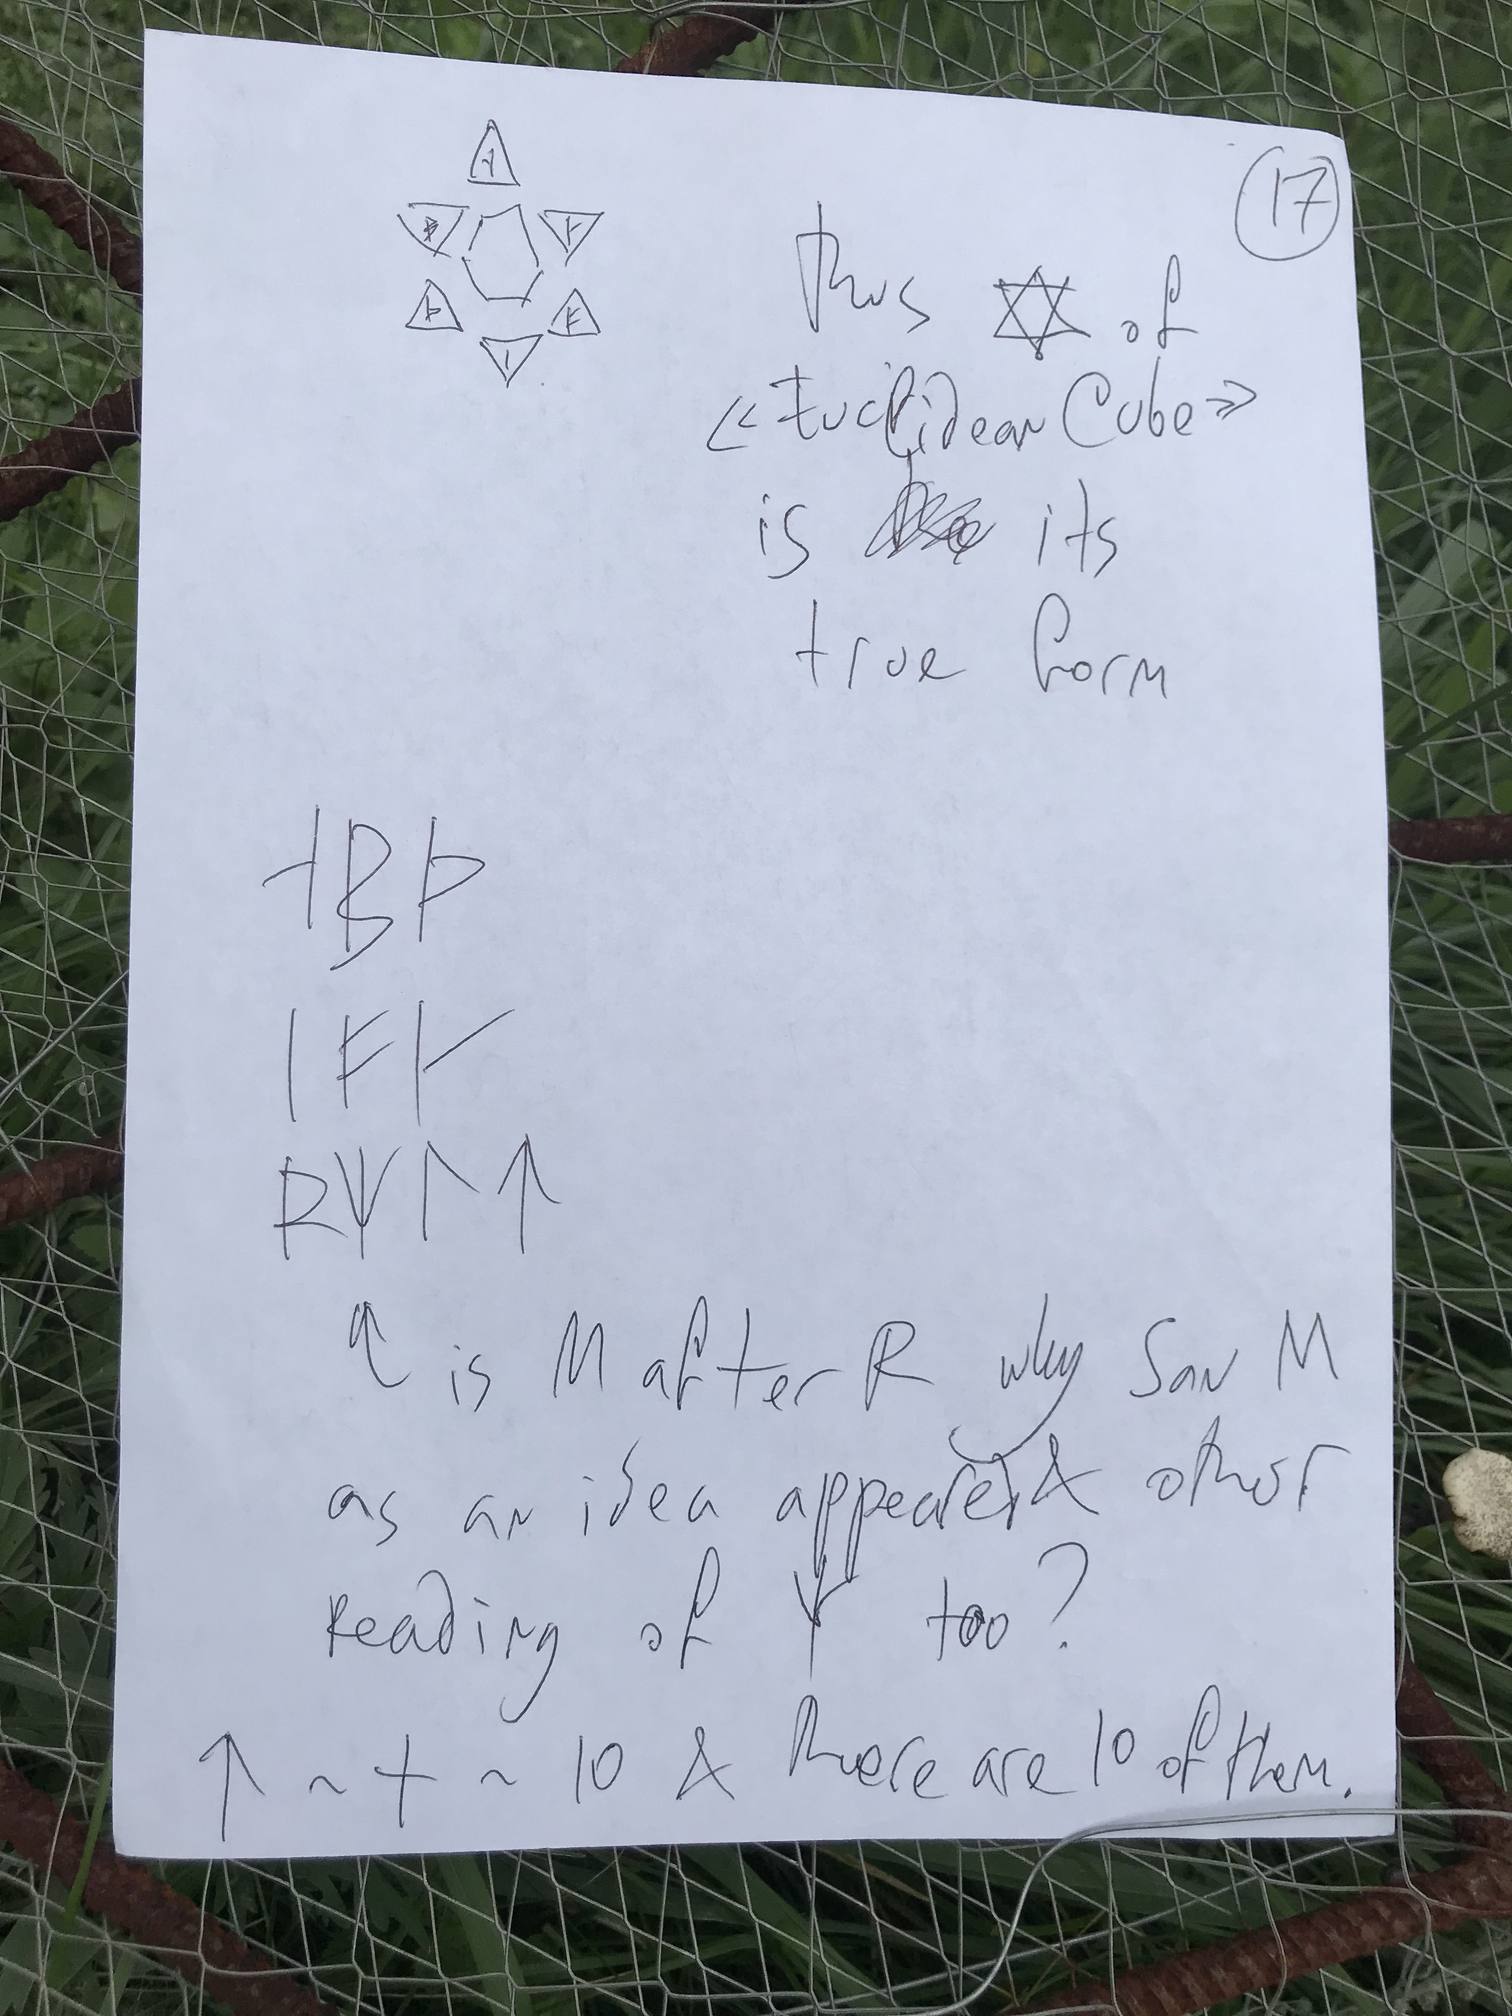 17
thus ✡ of
<<Euclidean Cube>>
is its
true form
ᛆBᚦ
ᛁᚠᛣ
Rᛘᛚᛏ
↑ is M after R why San M
as an idea appeared & other
reading of ᛘ too?
↑ ~ + ~ 10 & there are 10 of them.